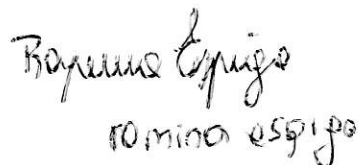 Romina Espiga
romina espiga